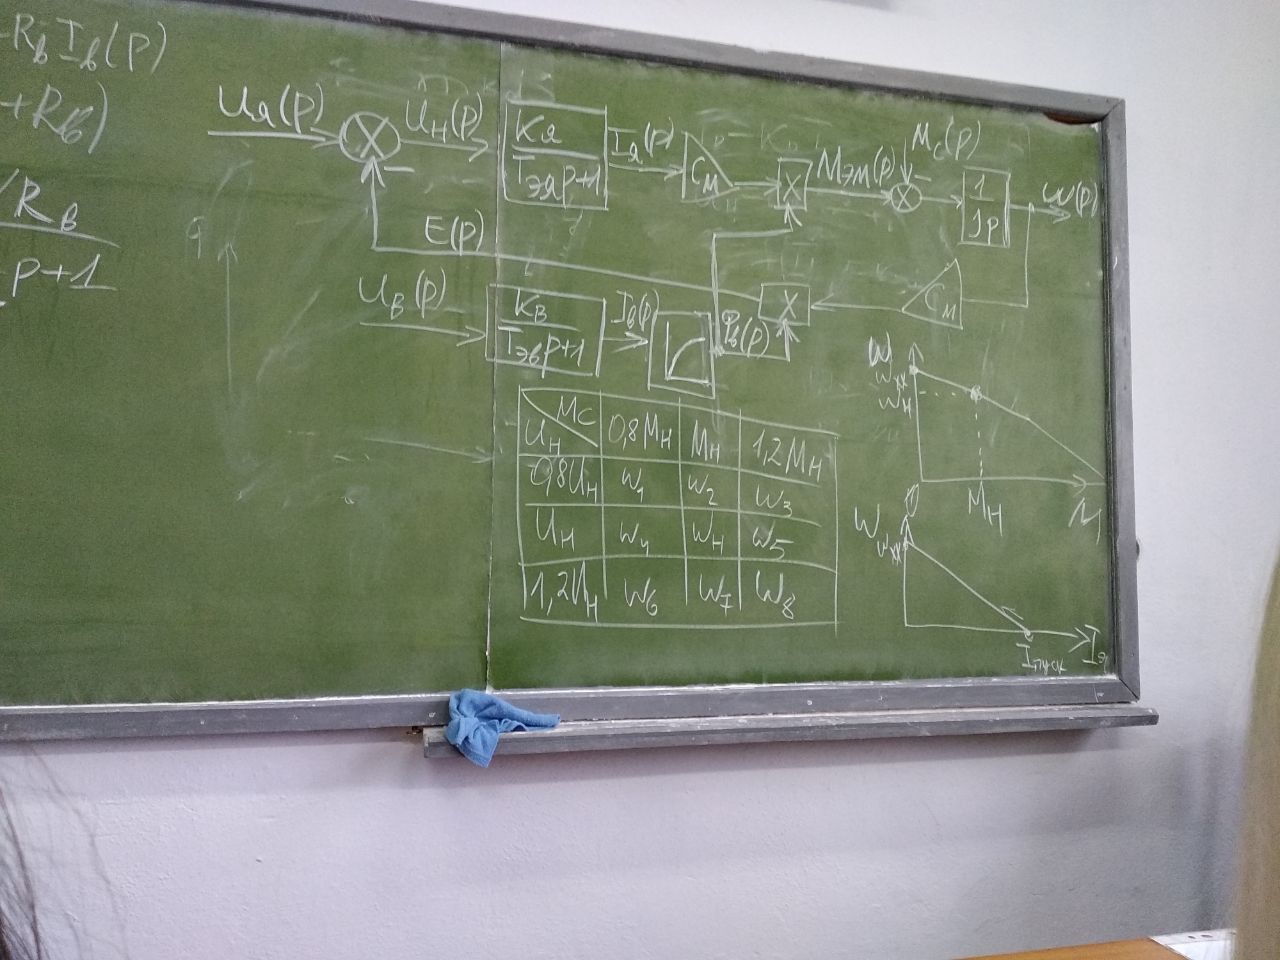 -RвIв(p)
+Rв)
/Rв
p+1
Uя(p)
Uн(p)
Kя
Tэяp+1
Iя(p)
Cм
X
Mэм(p)
Mс(p)
1
Jp
ω(p)
E(p)
Uв(p)
Kв
Tэвp+1
Iв(p)
Φв(p)
X
Cм
Mс 0,8Mн Mн 1,2Mн
Uн
0,8Uн ω1 ω2 ω3
Uн ω4 ωн ω5
1,2Uн ω6 ω7 ω8
W
ωхх
ωн
Mн
M
W
ωхх
Iпуск
Iя